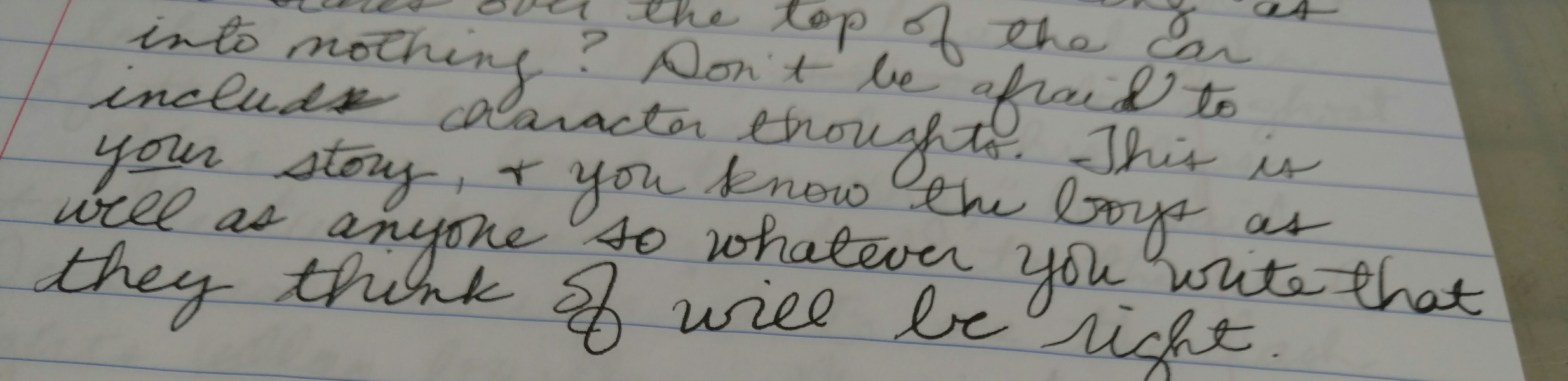 over the top of the car as
into nothing? Don't be afraid to
include character thoughts. This is
your story, + you know the boys as
well as anyone so whatever you write that
they think of will be right.